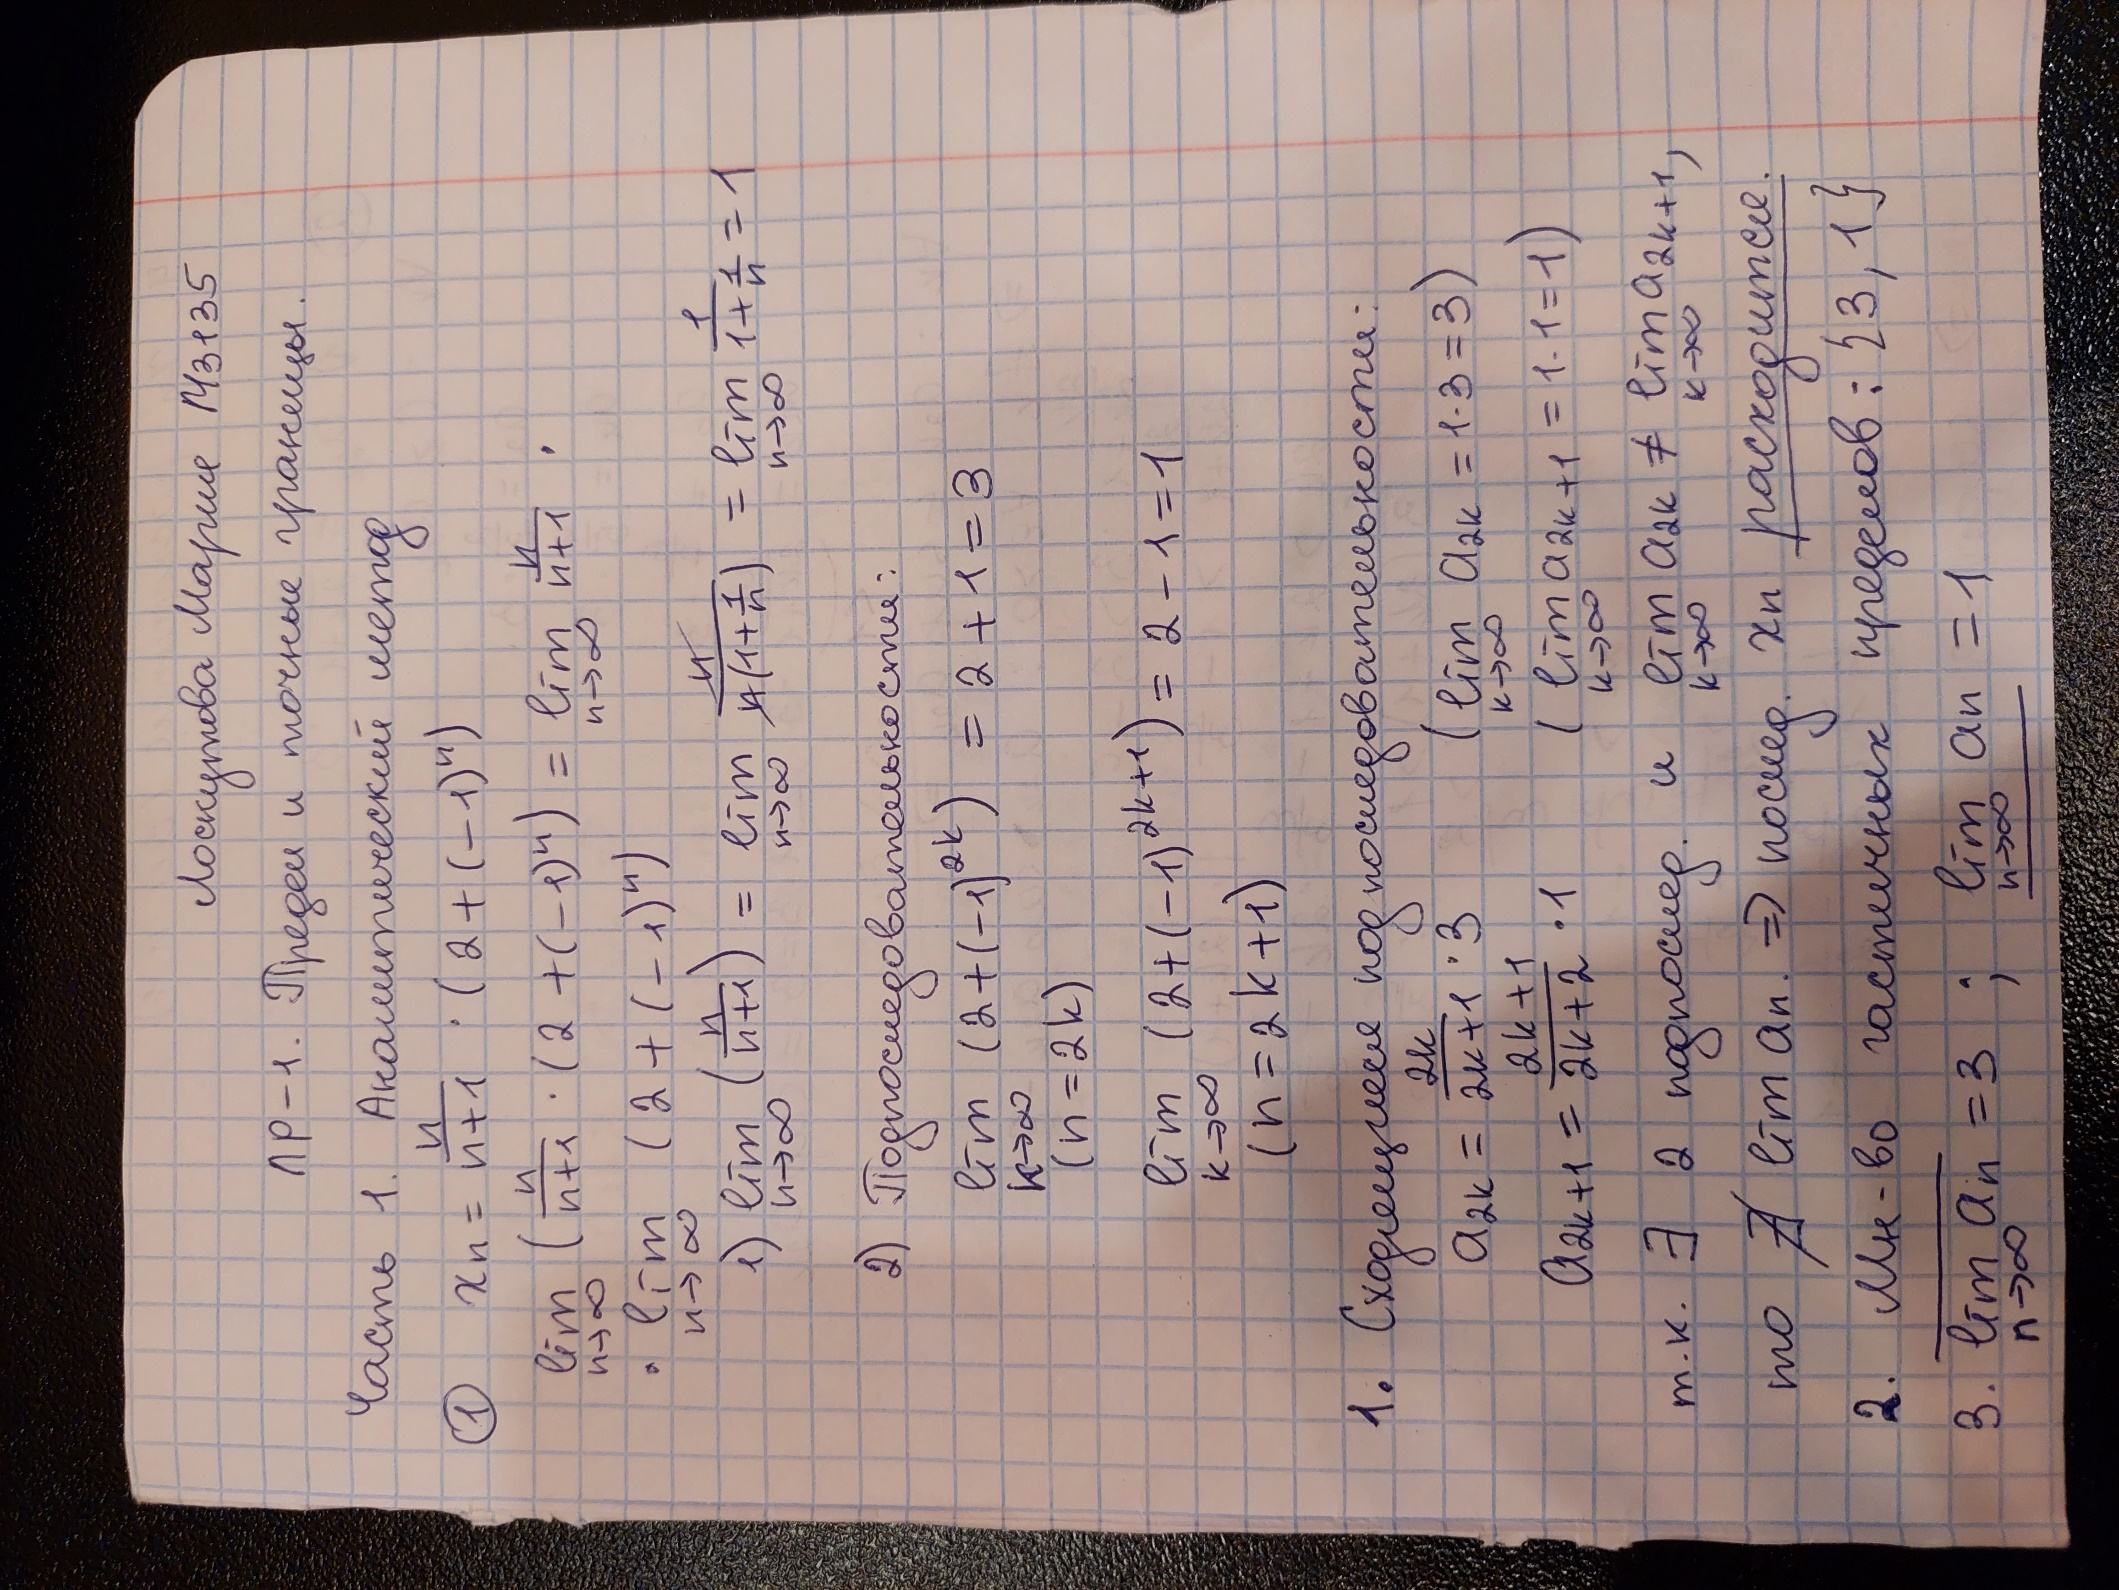 Лоскутова Мария М3135
ЛР-1. Предел и точные границы.
Часть 1. Аналитический метод
① xn = n/(n+1) · (2+(-1)^n)
lim n→∞ (n/(n+1) · (2+(-1)^n)) = lim n→∞ n/(n+1) ·
· lim n→∞ (2+(-1)^n)
1) lim n→∞ (n/(n+1)) = lim n→∞ n/(n(1+1/n)) = lim n→∞ 1/(1+1/n) = 1
2) Подпоследовательности:
lim k→∞ (2+(-1)^2k) = 2+1=3
(n=2k)
lim k→∞ (2+(-1)^2k+1) = 2-1=1
(n=2k+1)
1. Сходящиеся подпоследовательности:
a2k = 2k/(2k+1) · 3 (lim k→∞ a2k = 1·3=3)
a2k+1 = (2k+1)/(2k+2) · 1 (lim k→∞ a2k+1 = 1·1=1)
т.к. ∃ 2 подпослед. и lim k→∞ a2k ≠ lim k→∞ a2k+1,
то ∄ lim an. ⇒ послед. xn расходится.
2. Мн-во частичных пределов: {3, 1}
3. \overline{lim} n→∞ an = 3 ; \underline{lim} n→∞ an = 1